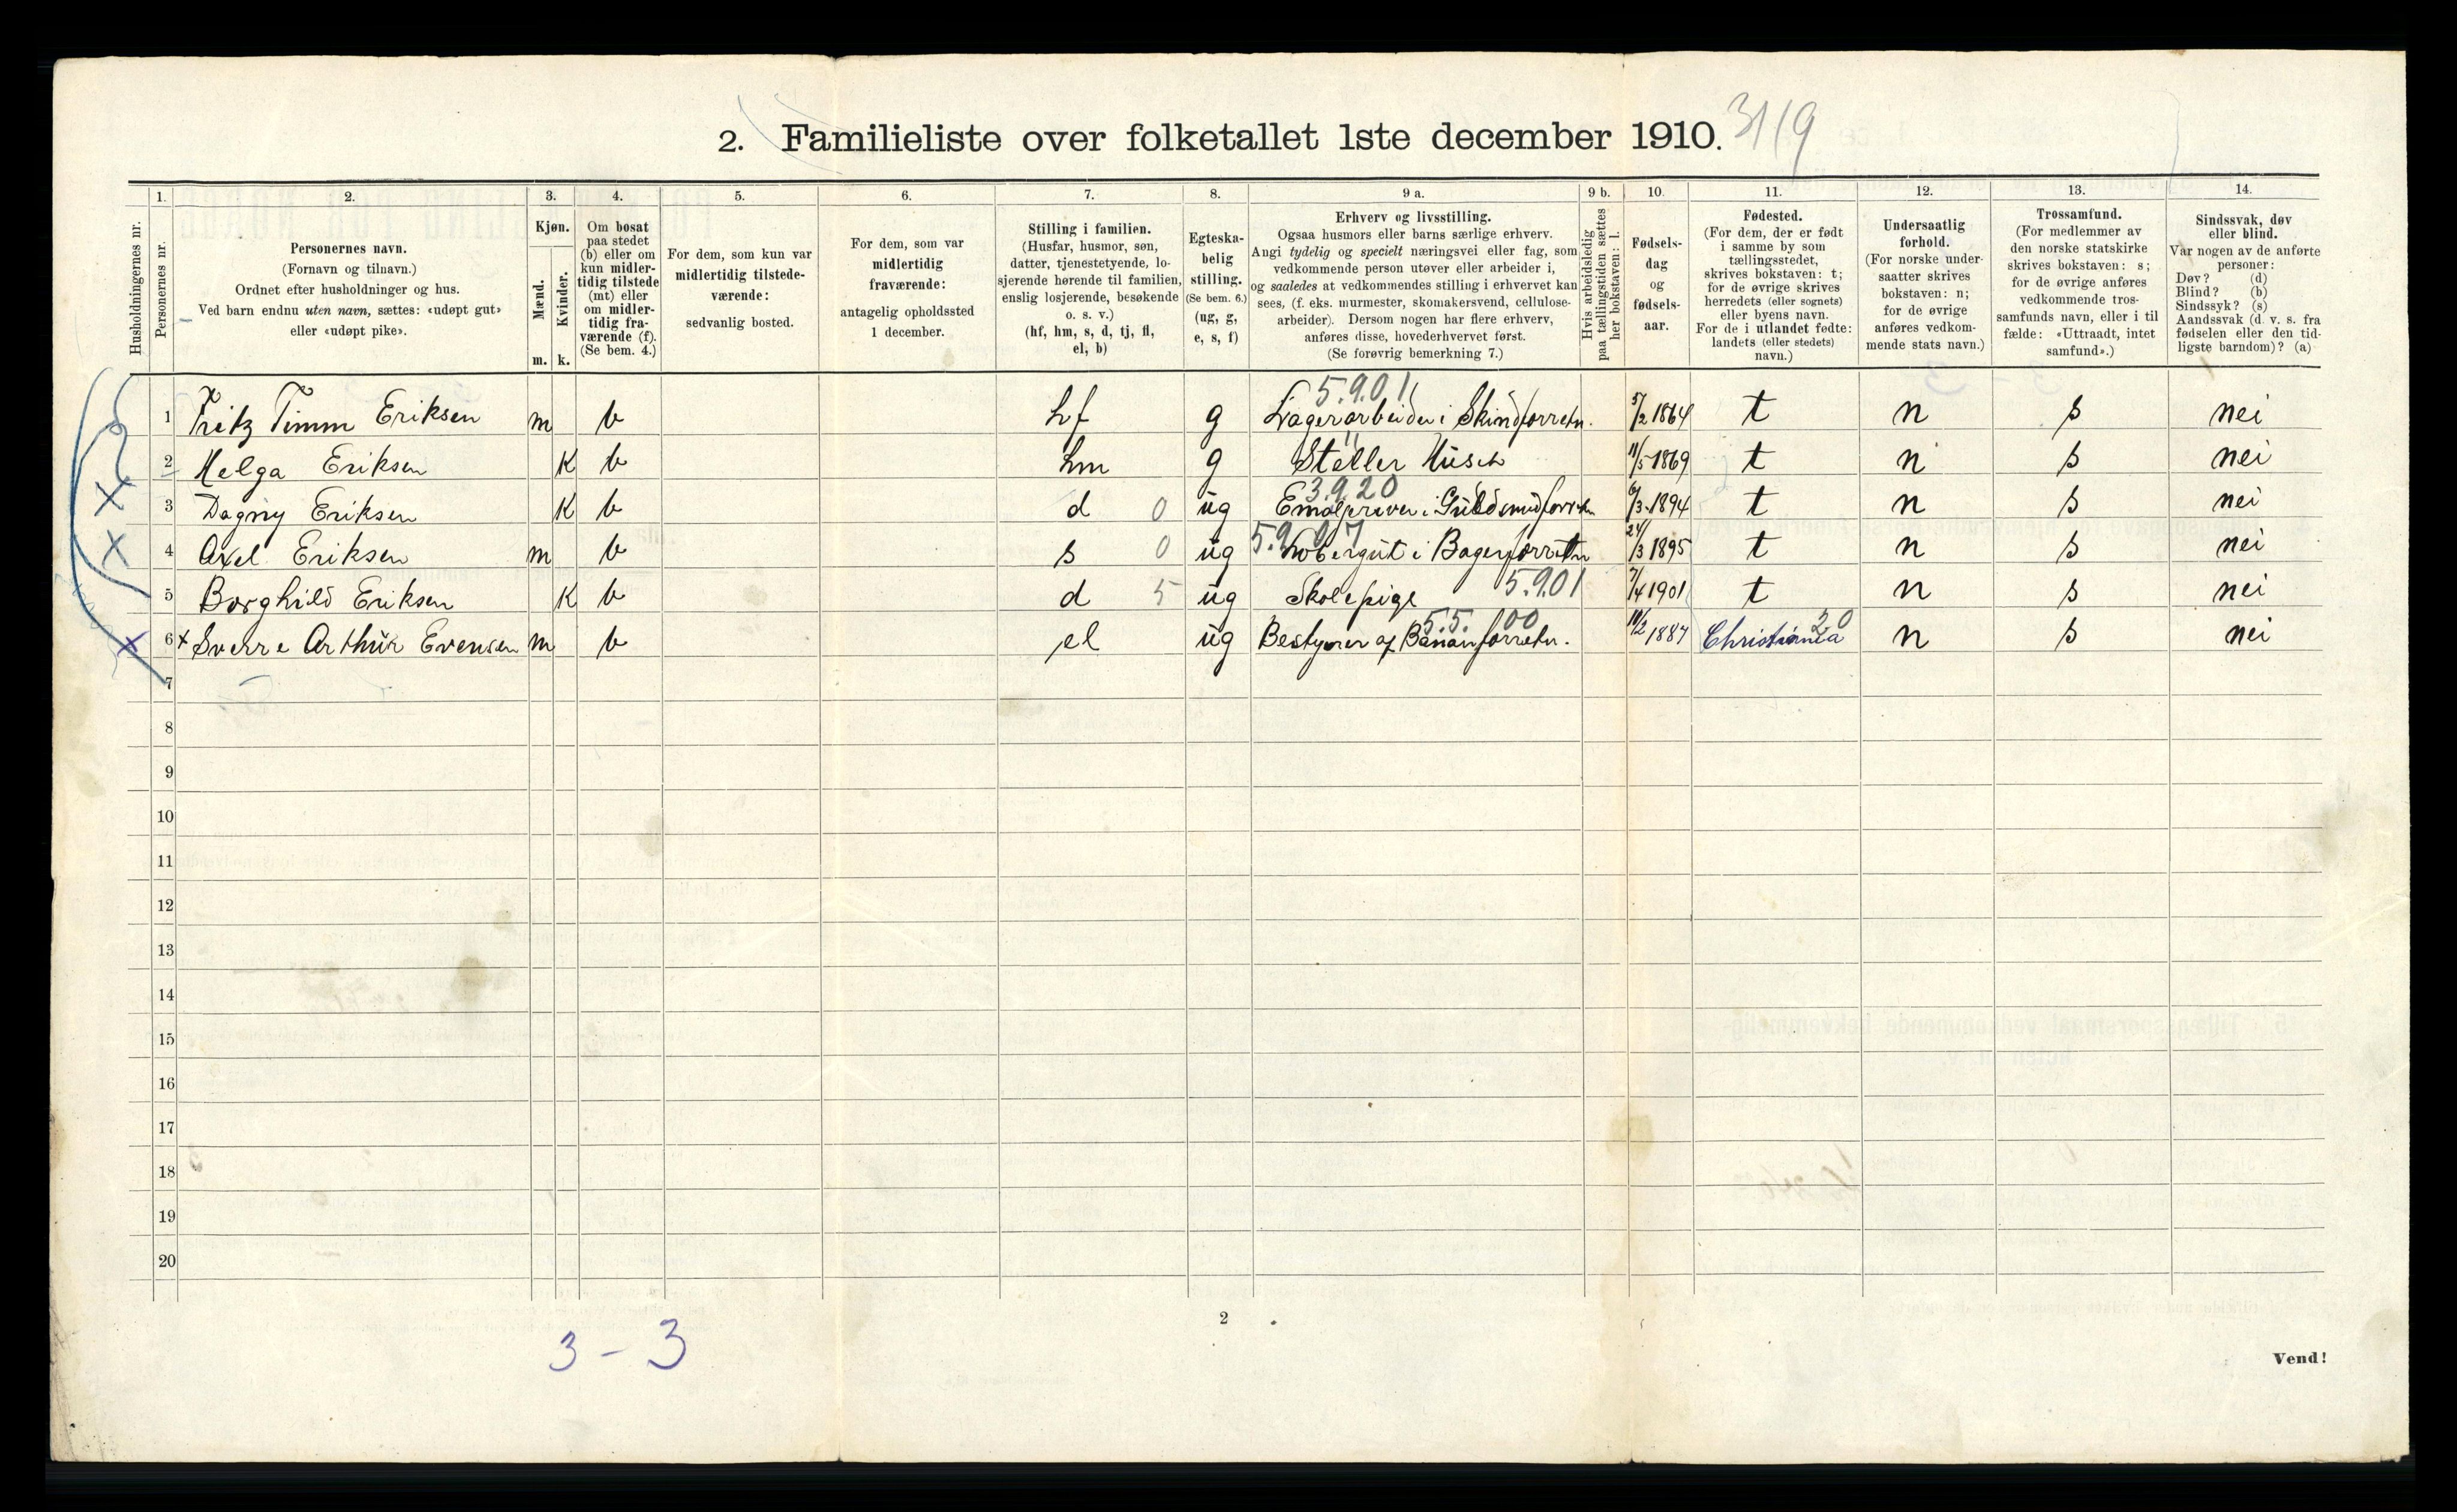 2. Familieliste over folketallet 1ste december 1910. 31/9
1. 2. 3. 4. 5. 6. 7. 8. 9 a. 9 b. 10. 11. 12. 13. 14.
Husholdningernes nr.
Personernes nr.
Personernes navn.
(Fornavn og tilnavn.)
Ordnet efter husholdninger og hus.
Ved barn endnu uten navn, sættes: «udøpt gut»
eller «udøpt pike».
Kjøn.
Mænd.
Kvinder.
m. k.
Om bosat
paa stedet
(b) eller om
kun midler-
tidig tilstede
(mt) eller
om midler-
tidig fra-
værende (f).
(Se bem. 4.)
For dem, som kun var
midlertidig tilstede-
værende:
sedvanlig bosted.
For dem, som var
midlertidig
fraværende:
antagelig opholdssted
1 december.
Stilling i familien.
(Husfar, husmor, søn,
datter, tjenestetyende, lo-
sjerende hørende til familien,
enslig losjerende, besøkende
o. s. v.)
(hf, hm, s, d, tj, fl,
el, b)
Egteska-
belig
stilling.
(Se bem. 6.)
(ug, g,
e, s, f)
Erhverv og livsstilling.
Ogsaa husmors eller barns særlige erhverv.
Angi tydelig og specielt næringsvei eller fag, som
vedkommende person utøver eller arbeider i,
og saaledes at vedkommendes stilling i erhvervet kan
sees, (f. eks. murmester, skomakersvend, cellulose-
arbeider). Dersom nogen har flere erhverv,
anføres disse, hovederhvervet først.
(Se forøvrig bemerkning 7.)
Hvis arbeidsledig
paa tællingstiden sættes
her bokstaven: l.
Fødsels-
dag
og
fødsels-
aar.
Fødested.
(For dem, der er født
i samme by som
tællingsstedet,
skrives bokstaven: t;
for de øvrige skrives
herredets (eller sognets)
eller byens navn.
For de i utlandet fødte:
landets (eller stedets)
navn.)
Undersaatlig
forhold.
(For norske under-
saatter skrives
bokstaven: n;
for de øvrige
anføres vedkom-
mende stats navn.)
Trossamfund.
(For medlemmer av
den norske statskirke
skrives bokstaven: s;
for de øvrige anføres
vedkommende tros-
samfunds navn, eller i til
fælde: «Uttraadt, intet
samfund».)
Sindssvak, døv
eller blind.
Var nogen av de anførte
personer:
Døv? (d)
Blind? (b)
Sindssyk? (s)
Aandssvak (d. v. s. fra
fødselen eller den tid-
ligste barndom)? (a)
5.9.01
1 Fritz Timm Eriksen m b hf g Lagerarbeider i Skindforretn. 5/2 1864 t n s nei
2 Helga Eriksen K b hm g Steller Huset 11/5 1869 t n s nei
3.9.20
3 Dagny Eriksen K b d 0 ug i Guldsmedforretn 6/3 1894 t n s nei
4 Axel Eriksen m b s 0 ug i Bagerforretn 24/3 1895 t n s nei
5 Borghild Eriksen K b d 5 ug Skolepige 5.9.01 7/4 1901 t n s nei
5.5.00 20
6 x Sverre Arthur Evensen m b el ug Bestyrer af Bananforretn. 11/2 1887 Christiania n s nei
7
8
9
10
11
12
13
14
15
16
17
18
19
20
2
3 - 3
Vend!